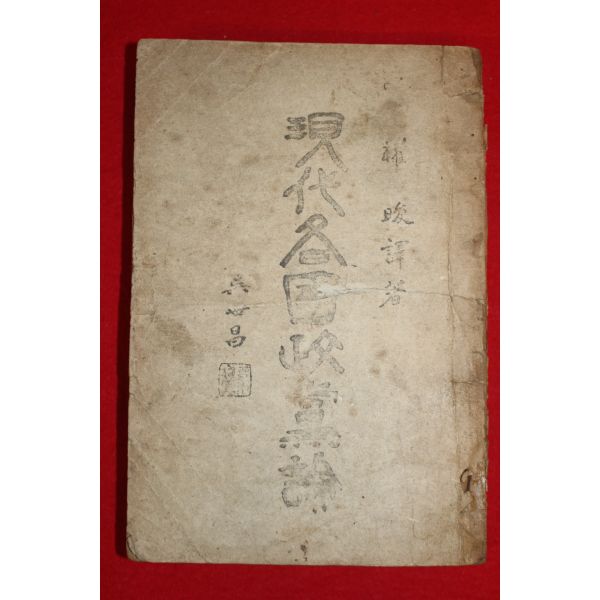 補畯譯著
現代各國政黨論
吳世昌